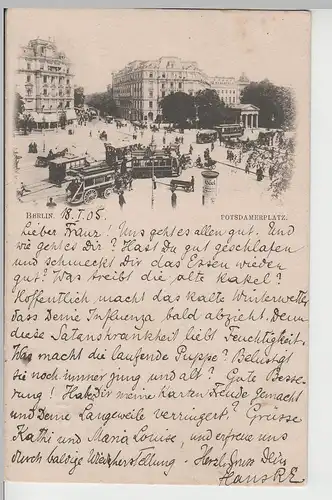 BERLIN. 18. I. 08. POTSDAMERPLATZ.
Lieber Franz! Uns geht es allen gut. Und
wie geht es Dir? Hast Du gut geschlafen
und schmeckt Dir das Essen wieder
gut? Was treibt die alte Kakel?
Hoffentlich macht das kalte Winterwetter,
dass Deine Influenza bald abzieht. Denn
diese Satanskrankheit liebt Feuchtigkeit.
Was macht die laufende Puppe? Belustigt
sie noch immer jung und alt? Gute Besse-
rung! Hat Dir meine Karten Freude gemacht
und Deine Langeweile verringert? Grüsse
Kathi und Maria Louise, und erfreue uns
durch baldige Wiederherstellung. Herzl. Gruss Dein
Hans